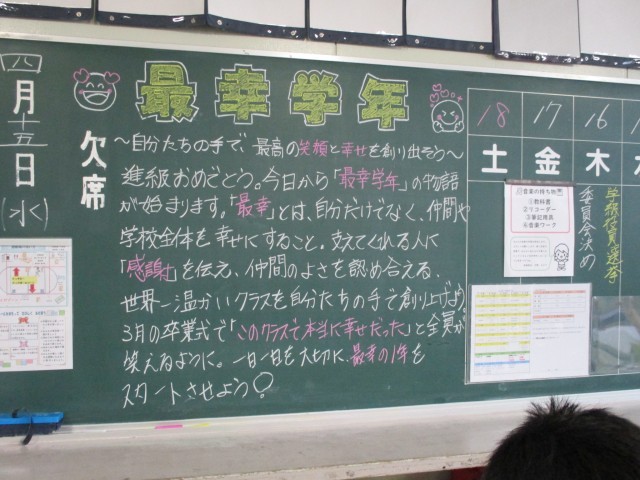 最幸学年
四月十五日(水)
欠席
～自分たちの手で、最高の笑顔と幸せを創り出そう～
進級おめでとう。今日から「最幸学年」の物語
が始まります。「最幸」とは、自分だけでなく、仲間や
学校全体を幸せにすること。支えてくれる人に
「感謝」を伝え、仲間のよさを認め合える、
世界一温かいクラスを自分たちの手で創り上げよう。
3月の卒業式で「このクラスで本当に幸せだった」と全員が
笑えるように。一日一日を大切に、最幸の1年を
スタートさせよう!
18 17 16
土 金 木
音楽の持ち物
①教科書
②リコーダー
③筆記用具
④音楽ワーク
委員会決め